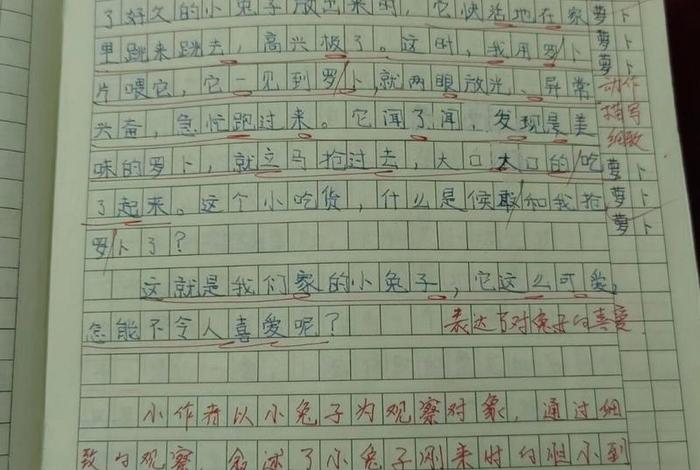 了好久的小兔子放出来时，它快活地在家
萝卜
里跳来跳去，高兴极了。这时，我用罗卜
萝卜
片喂它，它一见到罗卜，就两眼放光、异常
萝卜
兴奋，急忙跑过来。它闻了闻，发现是美
动作
描写
细致
味的罗卜，就立马抢过去，大口大口的吃
萝卜
了起来。这个小吃货，什么是候敢和我抢
萝卜
罗卜了？
萝卜
这就是我们家的小兔子，它这么可爱。
怎能不令人喜爱呢？
表达了对兔子的喜爱
小作者以小兔子为观察对象，通过细
致的观察，叙述了小兔子刚来时的胆小到